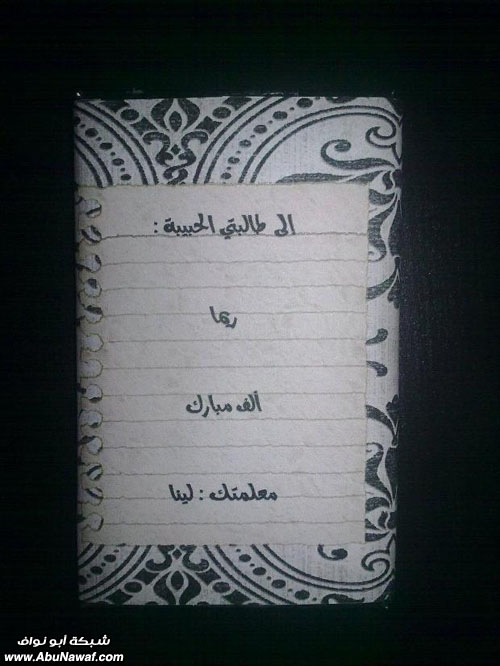 الى طالبتي الحبيبة :
ريما
ألف مبارك
معلمتك : لينا
شبكة أبو نواف
www.AbuNawaf.com